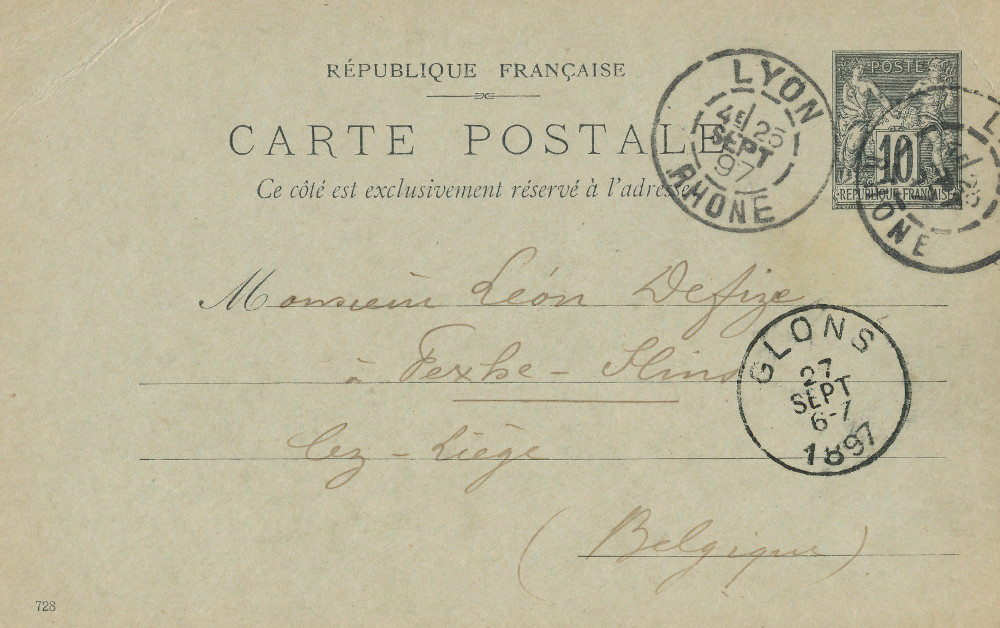 RÉPUBLIQUE FRANÇAISE
CARTE POSTALE
Ce côté est exclusivement réservé à l'adresse
LYON
4E 25
SEPT
97
RHONE
POSTE
10
REPUBLIQUE FRANÇAISE
L
ONE
Monsieur Léon Defize
à Fexhe - Slins
lez - Liège
(Belgique)
GLONS
27
SEPT
6-7
1897
728